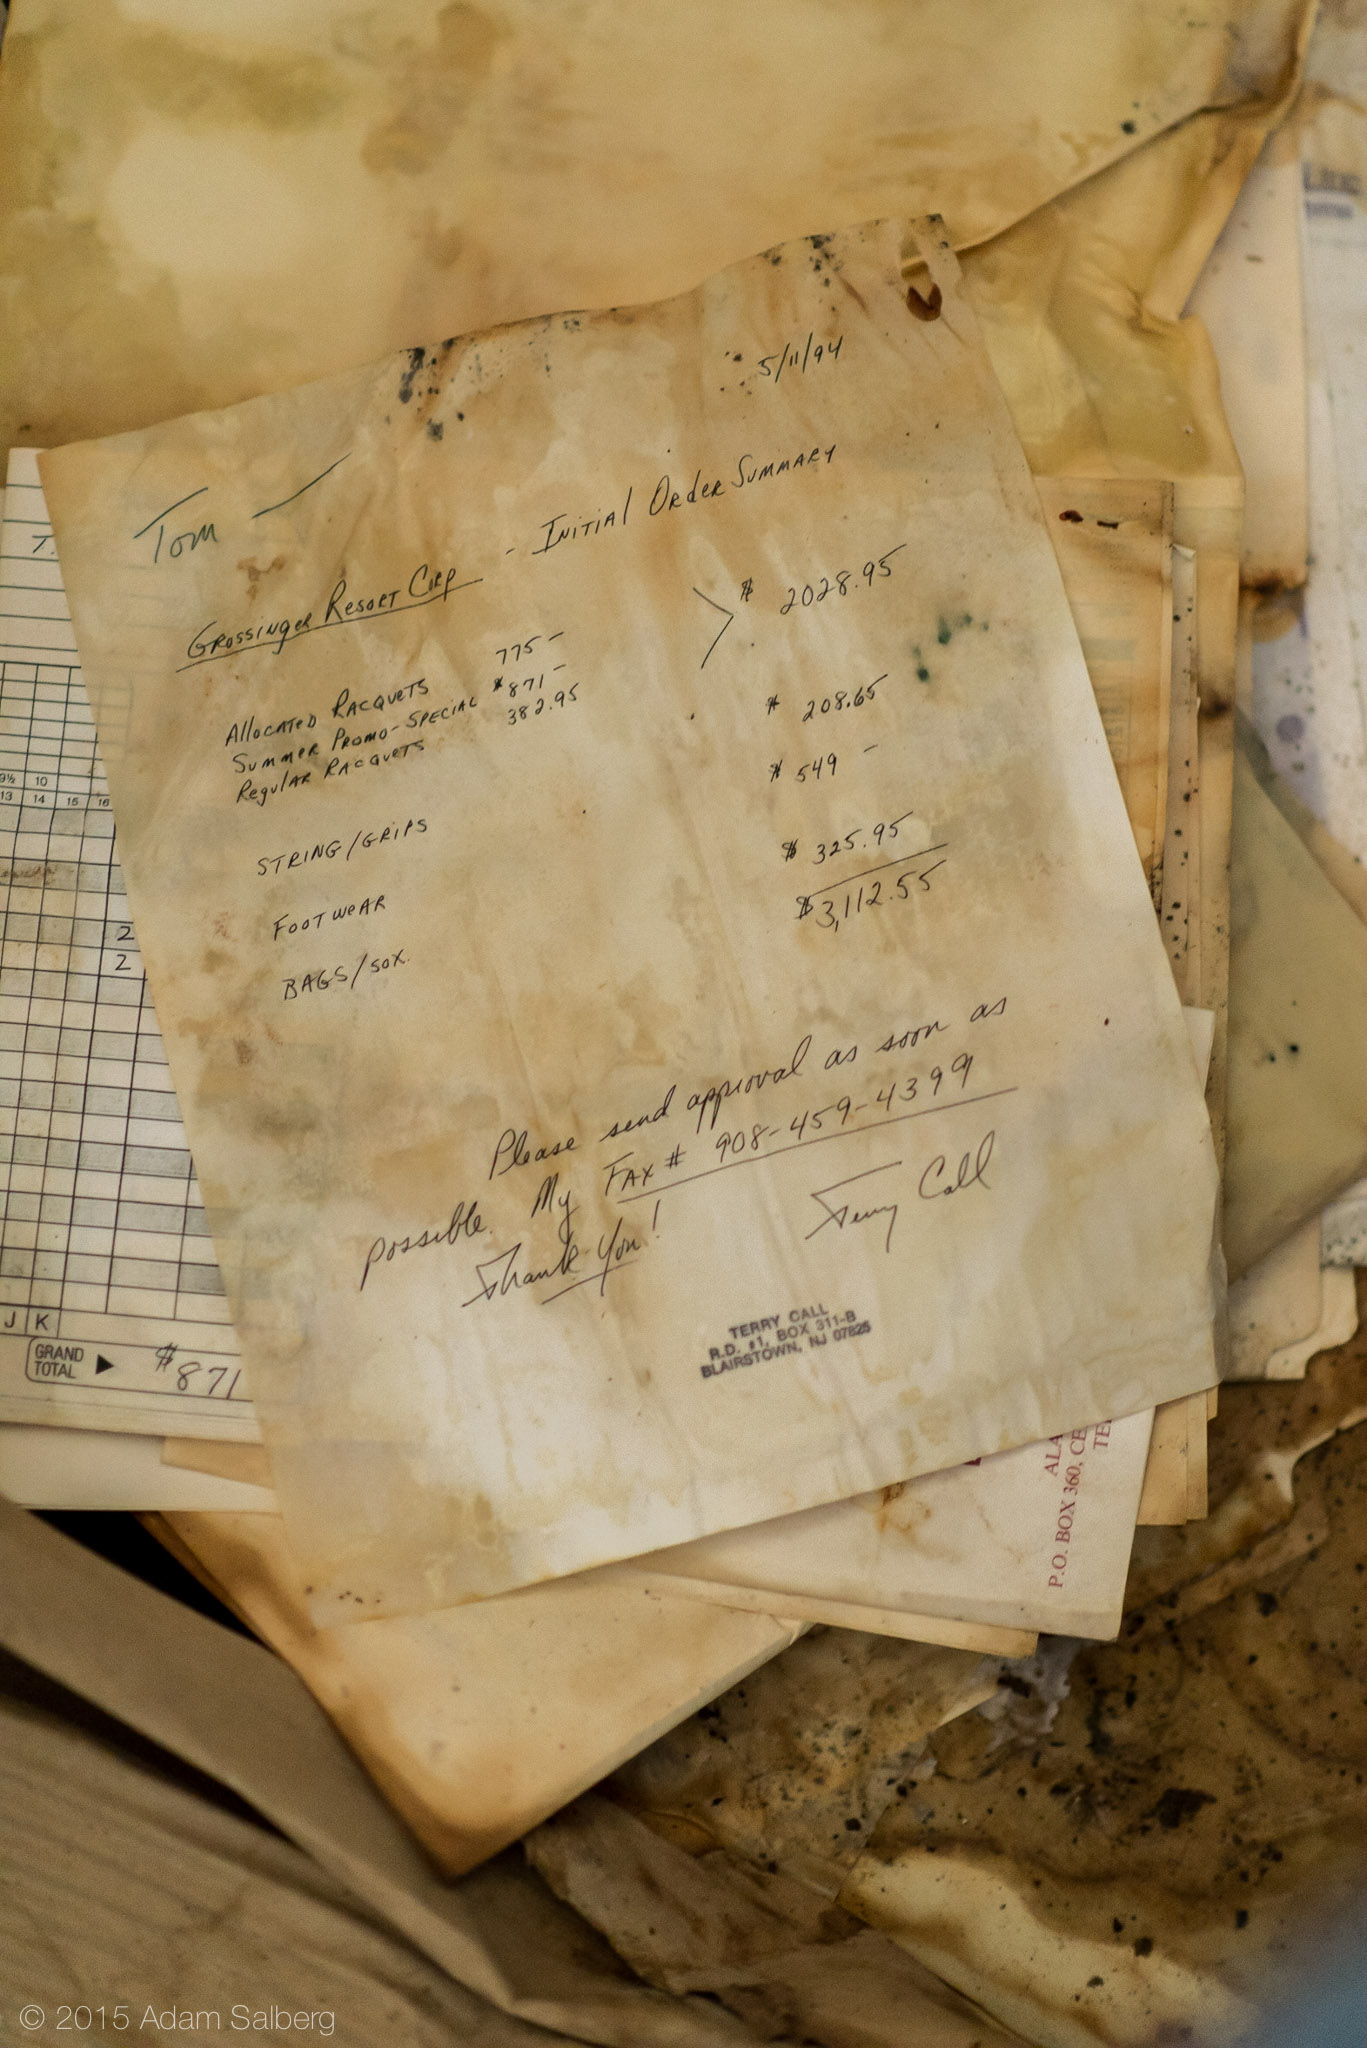 5/11/94
Tom
Grossinger Resort Corp - Initial Order Summary
Allocated Racquets 775 -
Summer Promo-Special $871 - > $ 2028.95
Regular Racquets 382.95
String/Grips $ 208.65
Footwear $ 549 -
Bags/Sox. $ 325.95
$3,112.55
Please send approval as soon as
possible. My Fax # 908-459-4399
Thank You!
Terry Call
TERRY CALL
R.D. #1, BOX 311-B
BLAIRSTOWN, NJ 07825
9½ 10
13 14 15 16
2
2
J K
GRAND TOTAL ▶ $871
ALA
P.O. BOX 360, CE
TE
© 2015 Adam Salberg